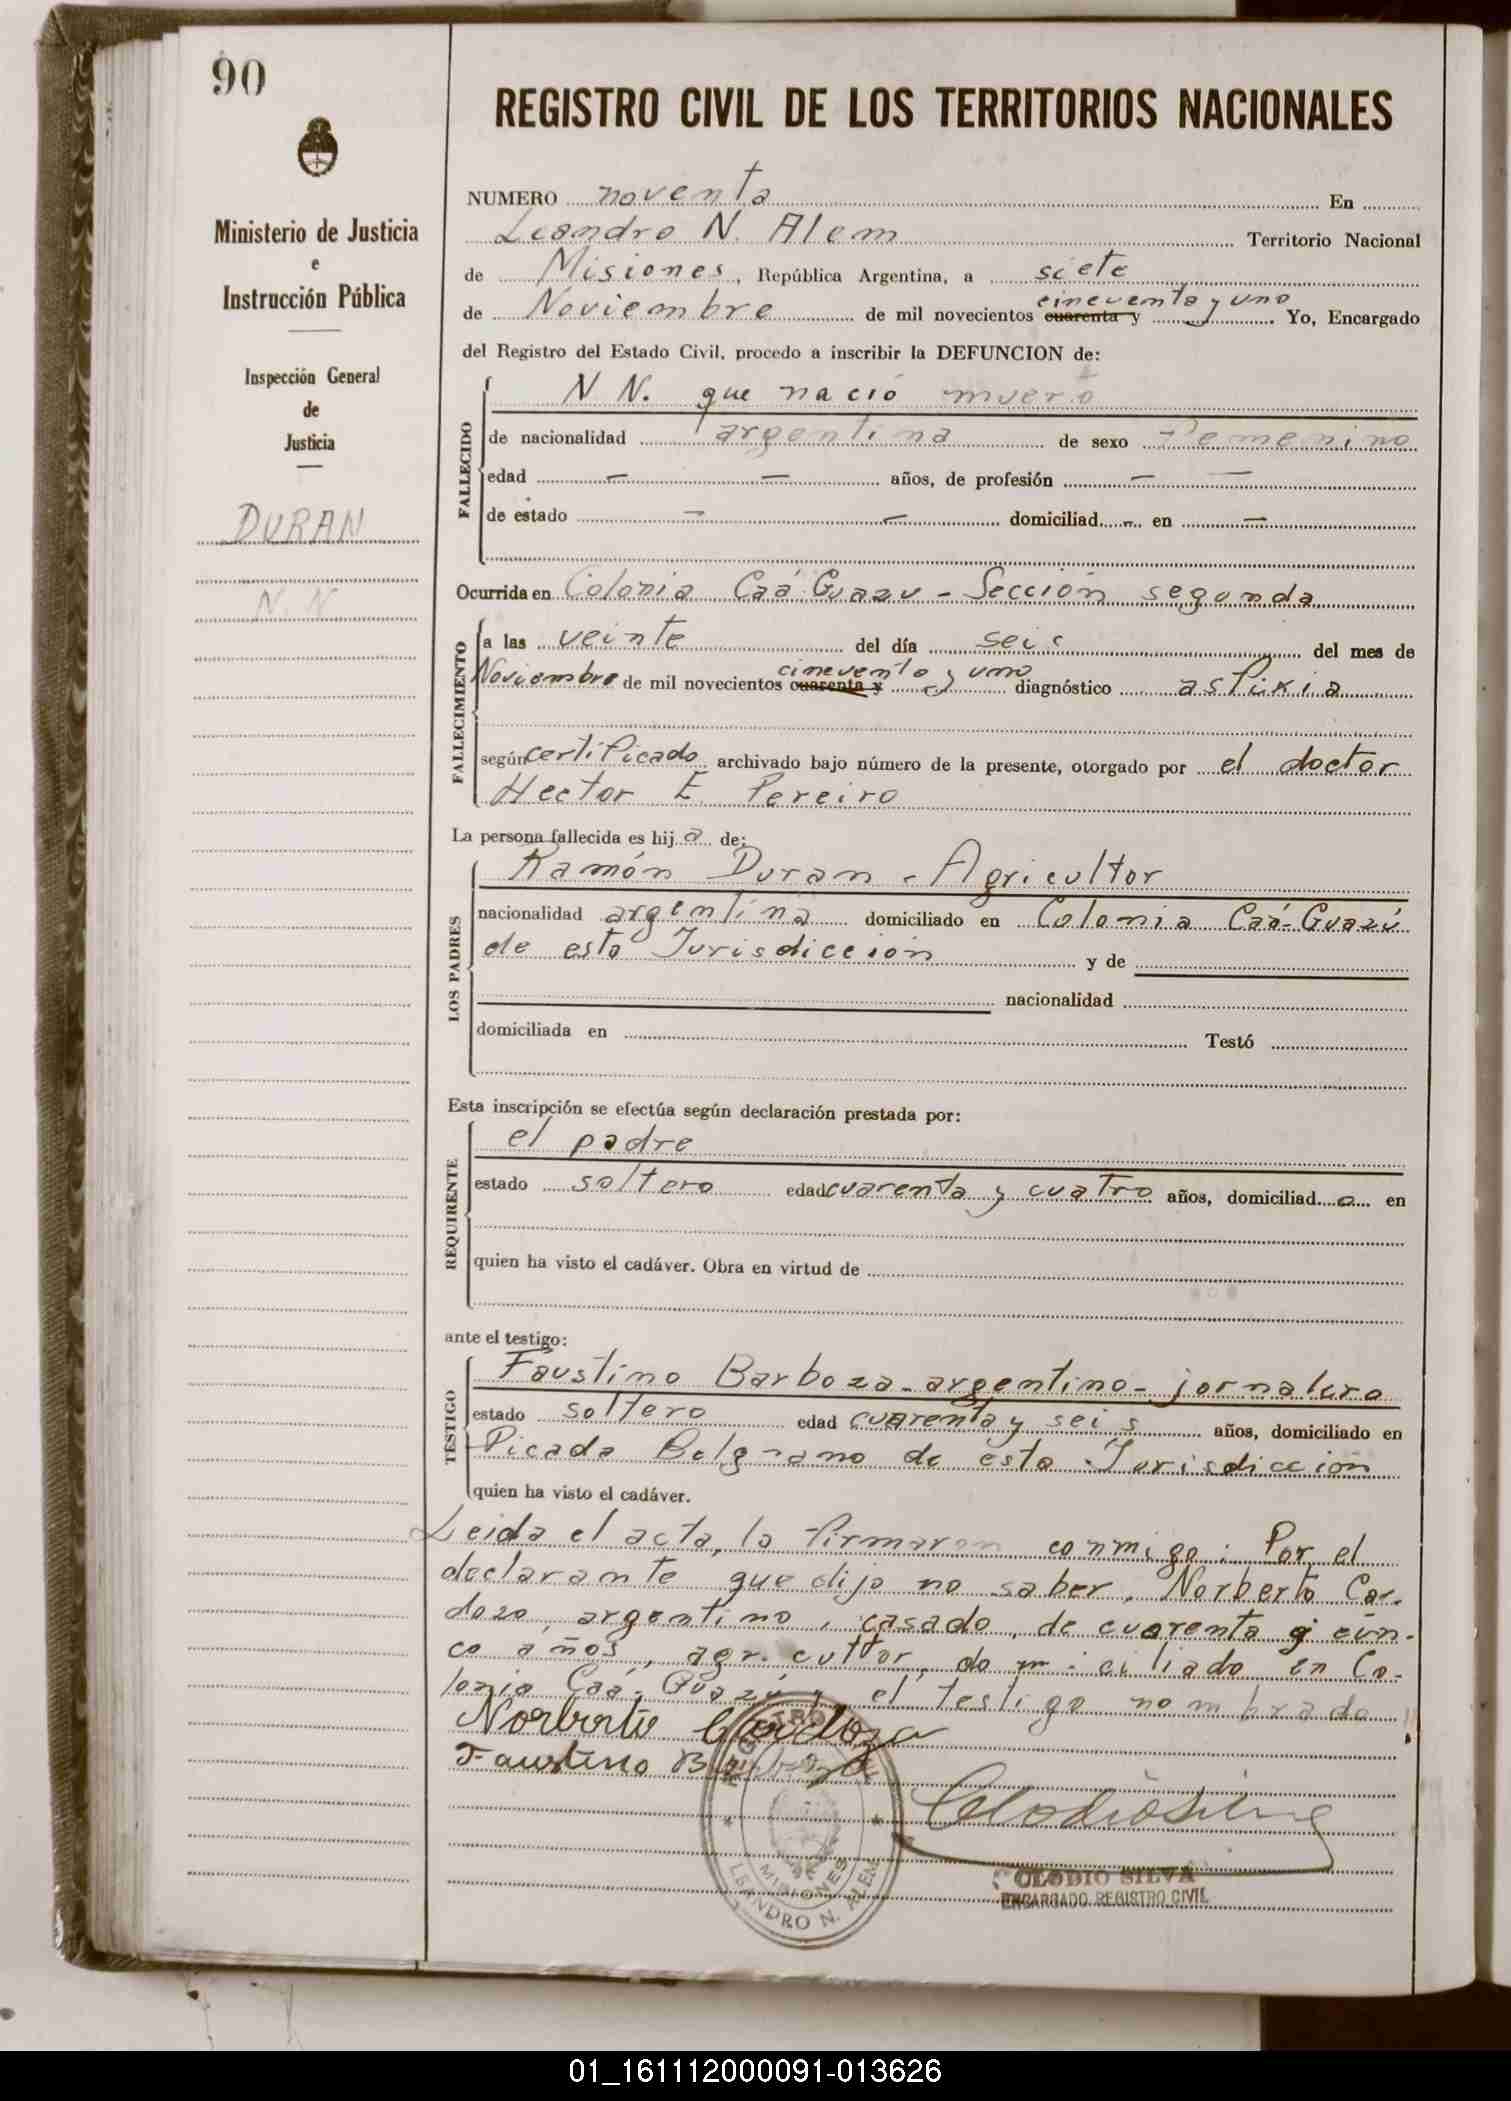 90
Ministerio de Justicia
e
Instrucción Pública
Inspección General
de
Justicia
DURAN
N. N
REGISTRO CIVIL DE LOS TERRITORIOS NACIONALES
NUMERO noventa En
Leandro N. Alem Territorio Nacional
de Misiones, República Argentina, a siete
de Noviembre de mil novecientos cuarenta y cincuenta y uno Yo, Encargado
del Registro del Estado Civil, procedo a inscribir la DEFUNCION de:
FALLECIDO
N N. que nació muerto
de nacionalidad argentina de sexo Femenino
edad — — años, de profesión — —
de estado — — domiciliad en —
Ocurrida en Colonia Caá-Guazu - Sección segunda
FALLECIMIENTO
a las veinte del día seis del mes de
Noviembre de mil novecientos cuarenta y cincuenta y uno diagnóstico asfixia
según certificado archivado bajo número de la presente, otorgado por el doctor
Hector E. Pereiro
La persona fallecida es hij a de:
LOS PADRES
Ramón Duran - Agricultor
nacionalidad argentina domiciliado en Colonia Caá-Guazú
de esta Jurisdicción y de
nacionalidad
domiciliada en Testó
Esta inscripción se efectúa según declaración prestada por:
REQUIRENTE
el padre
estado soltero edad cuarenta y cuatro años, domiciliad o en
quien ha visto el cadáver. Obra en virtud de
ante el testigo:
TESTIGO
Faustino Barboza - argentino - jornalero
estado soltero edad cuarenta y seis años, domiciliado en
Picada Belgrano de esta Jurisdicción
quien ha visto el cadáver.
Leida el acta, la firmaron conmigo: Por el
declarante que dijo no saber, Norberto Car-
dozo, argentino, casado, de cuarenta y cin-
co años, agricultor, domiciliado en Co-
lonia Caá-Guazú y el testigo nombrado
Norberto Cardozo
Faustino Barboza
REGISTRO CIVIL
MISIONES
LEANDRO N. ALEM
Clodio Silva
CLODIO SILVA
ENCARGADO REGISTRO CIVIL
01_161112000091-013626